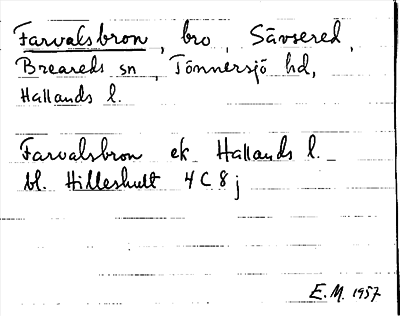 Farvalsbron, bro, Sävsered,
Breareds sn, Tönnersjö hd,
Hallands l.
Farvalsbron ek Hallands l.
bl. Hilleshult 4C8j
E.M. 1957